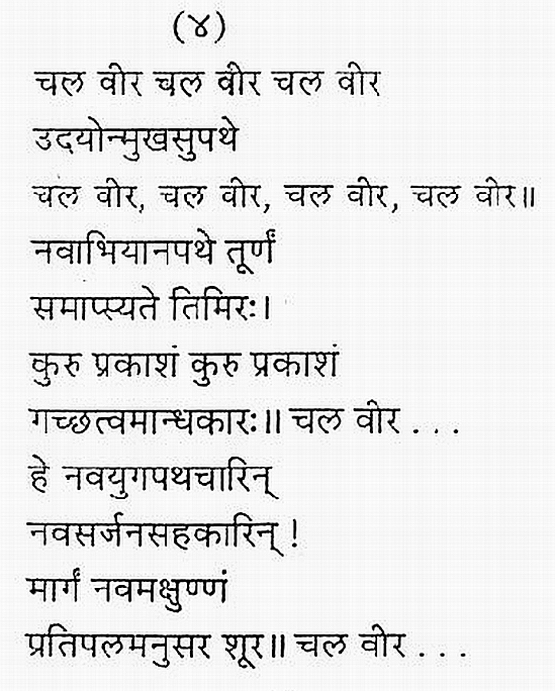 (४)
चल वीर चल वीर चल वीर
उदयोन्मुखसुपथे
चल वीर, चल वीर, चल वीर, चल वीर॥
नवाभियानपथे तूर्णं
समाप्स्यते तिमिरः।
कुरु प्रकाशं कुरु प्रकाशं
गच्छत्वमान्धकारः॥ चल वीर . . .
हे नवयुगपथचारिन्
नवसर्जनसहकारिन् !
मार्गं नवमक्षुण्णं
प्रतिपलमनुसर शूर॥ चल वीर . . .